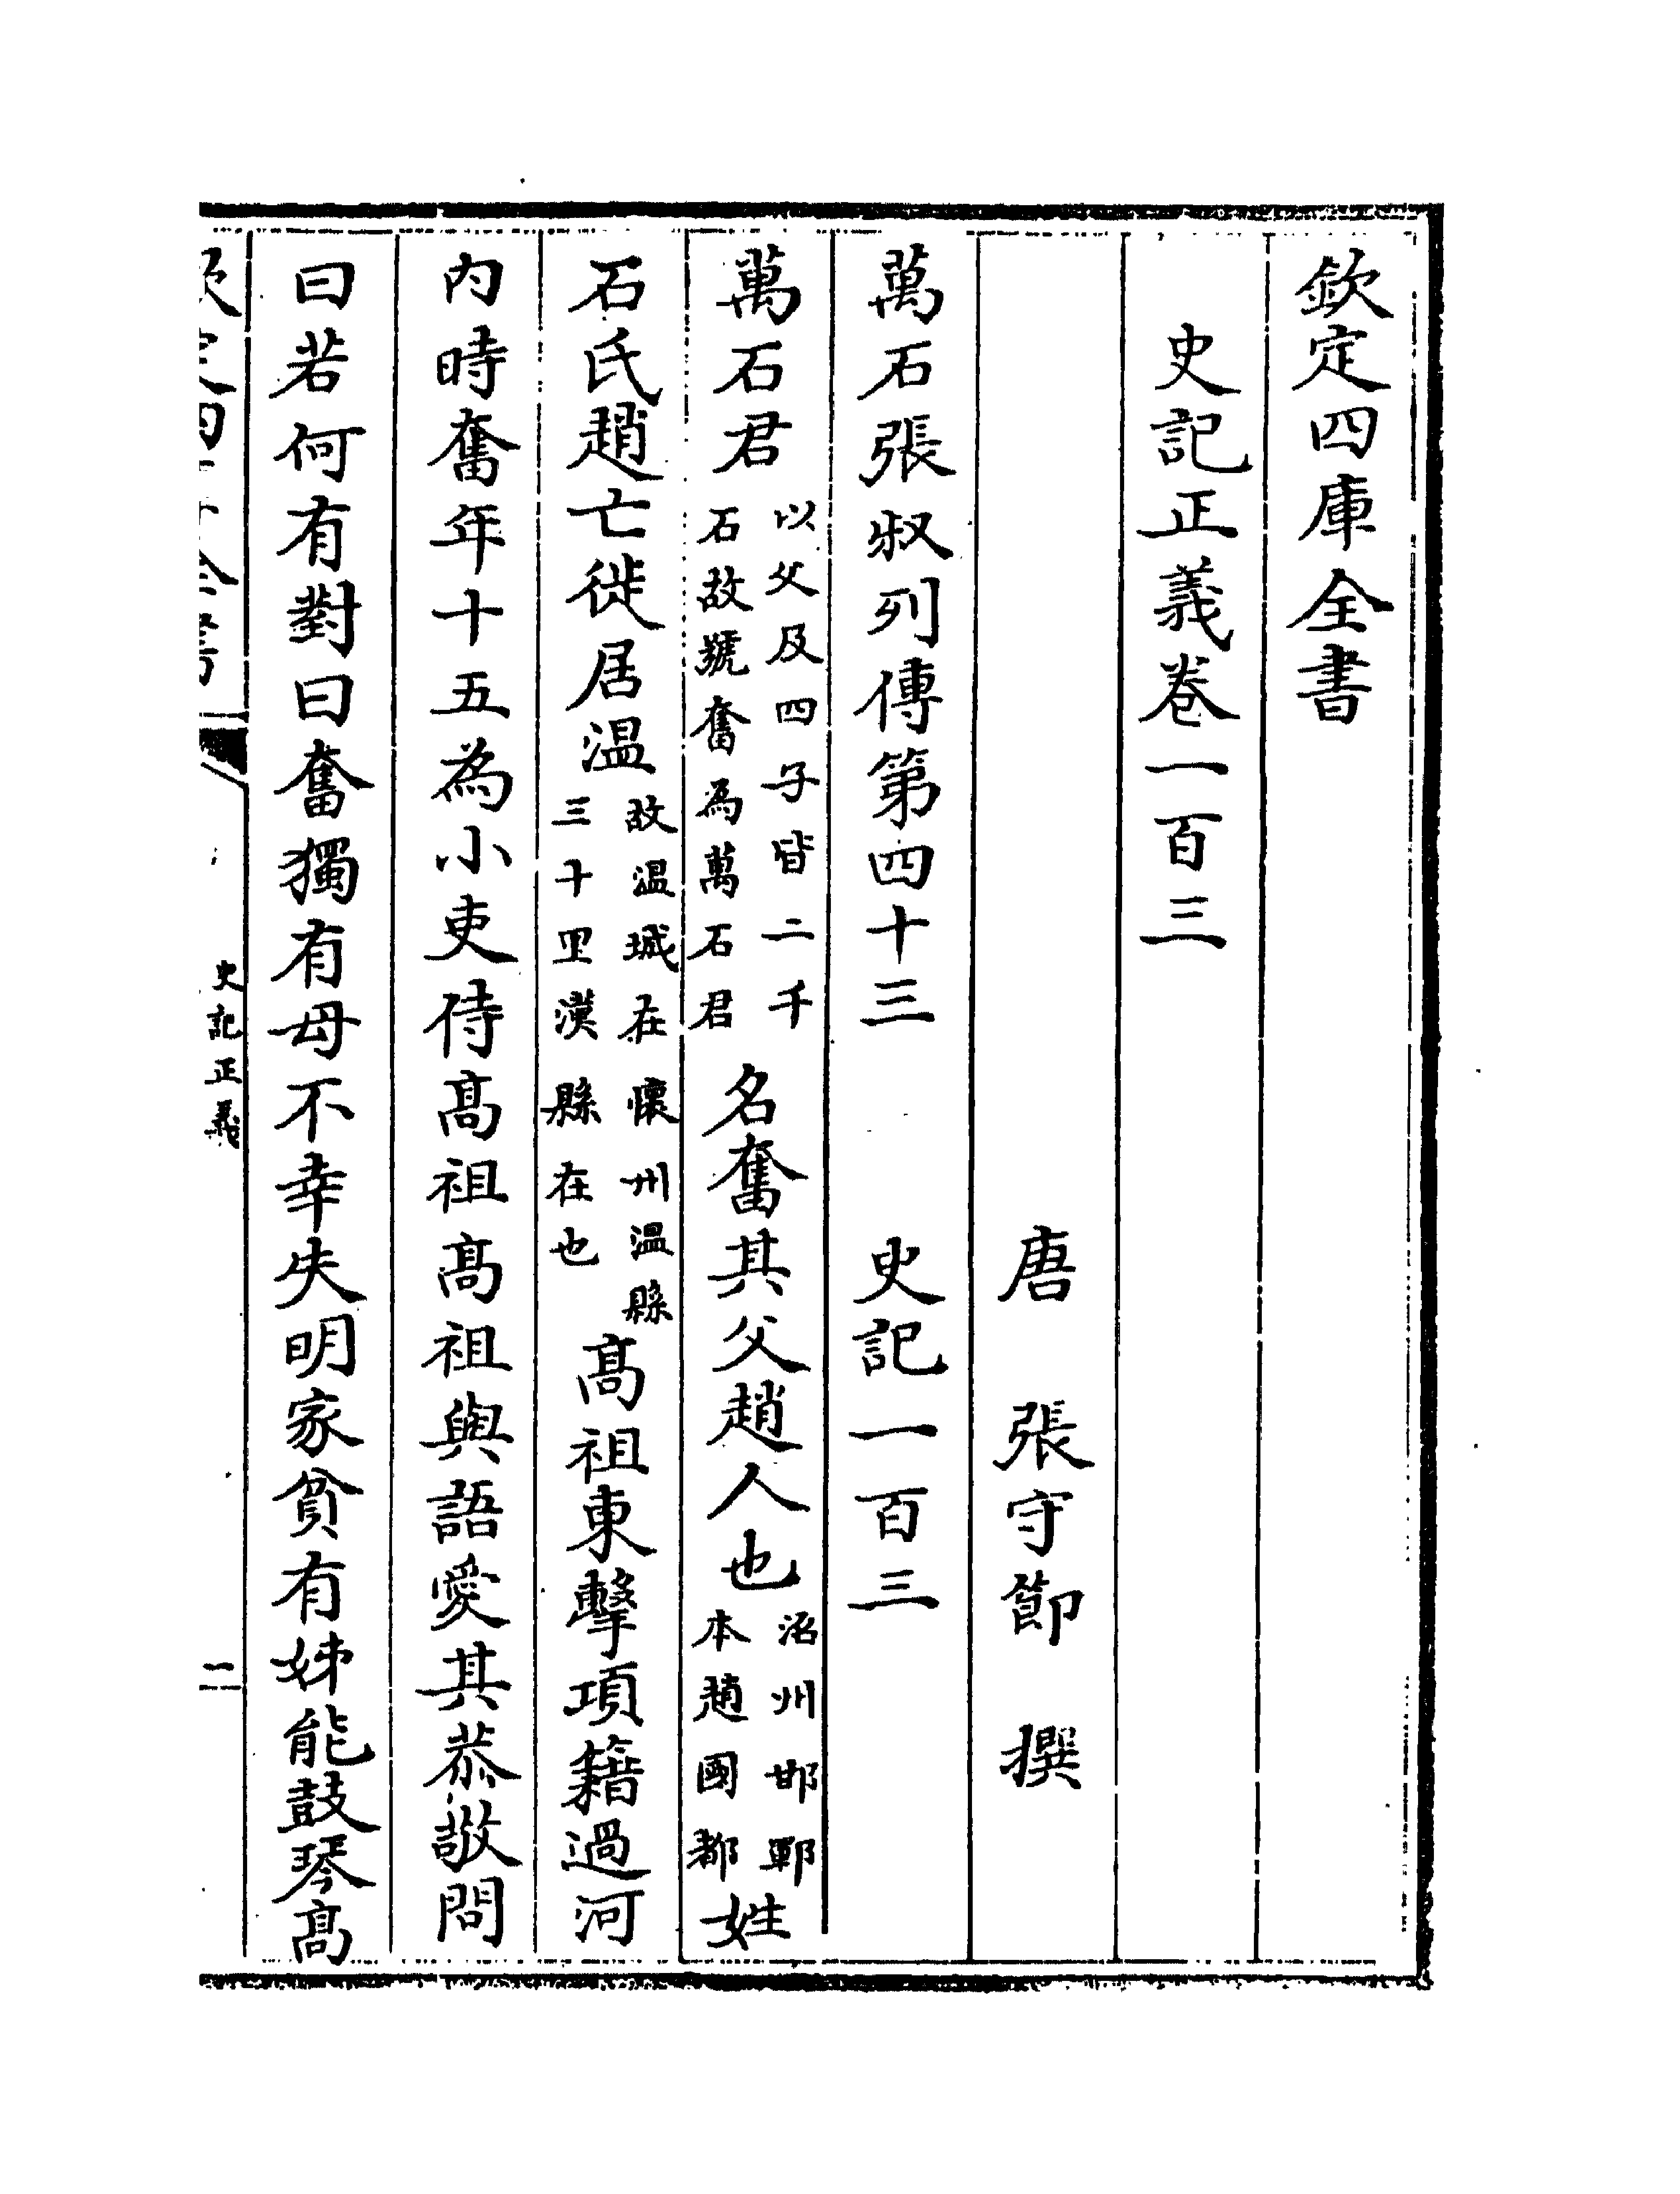 欽定四庫全書
史記正義卷一百三
唐 張守節 撰
萬石張叔列傳第四十三 史記一百三
萬石君以父及四子皆二千石故號奮為萬石君名奮其父趙人也洺州邯鄲本趙國都姓
石氏趙亡徙居温故温城在懷州温縣三十里漢縣在也髙祖東擊項籍過河
内時奮年十五為小吏侍髙祖髙祖與語愛其恭敬問
曰若何有對曰奮獨有母不幸失明家貧有姊能鼓琴髙
史記正義